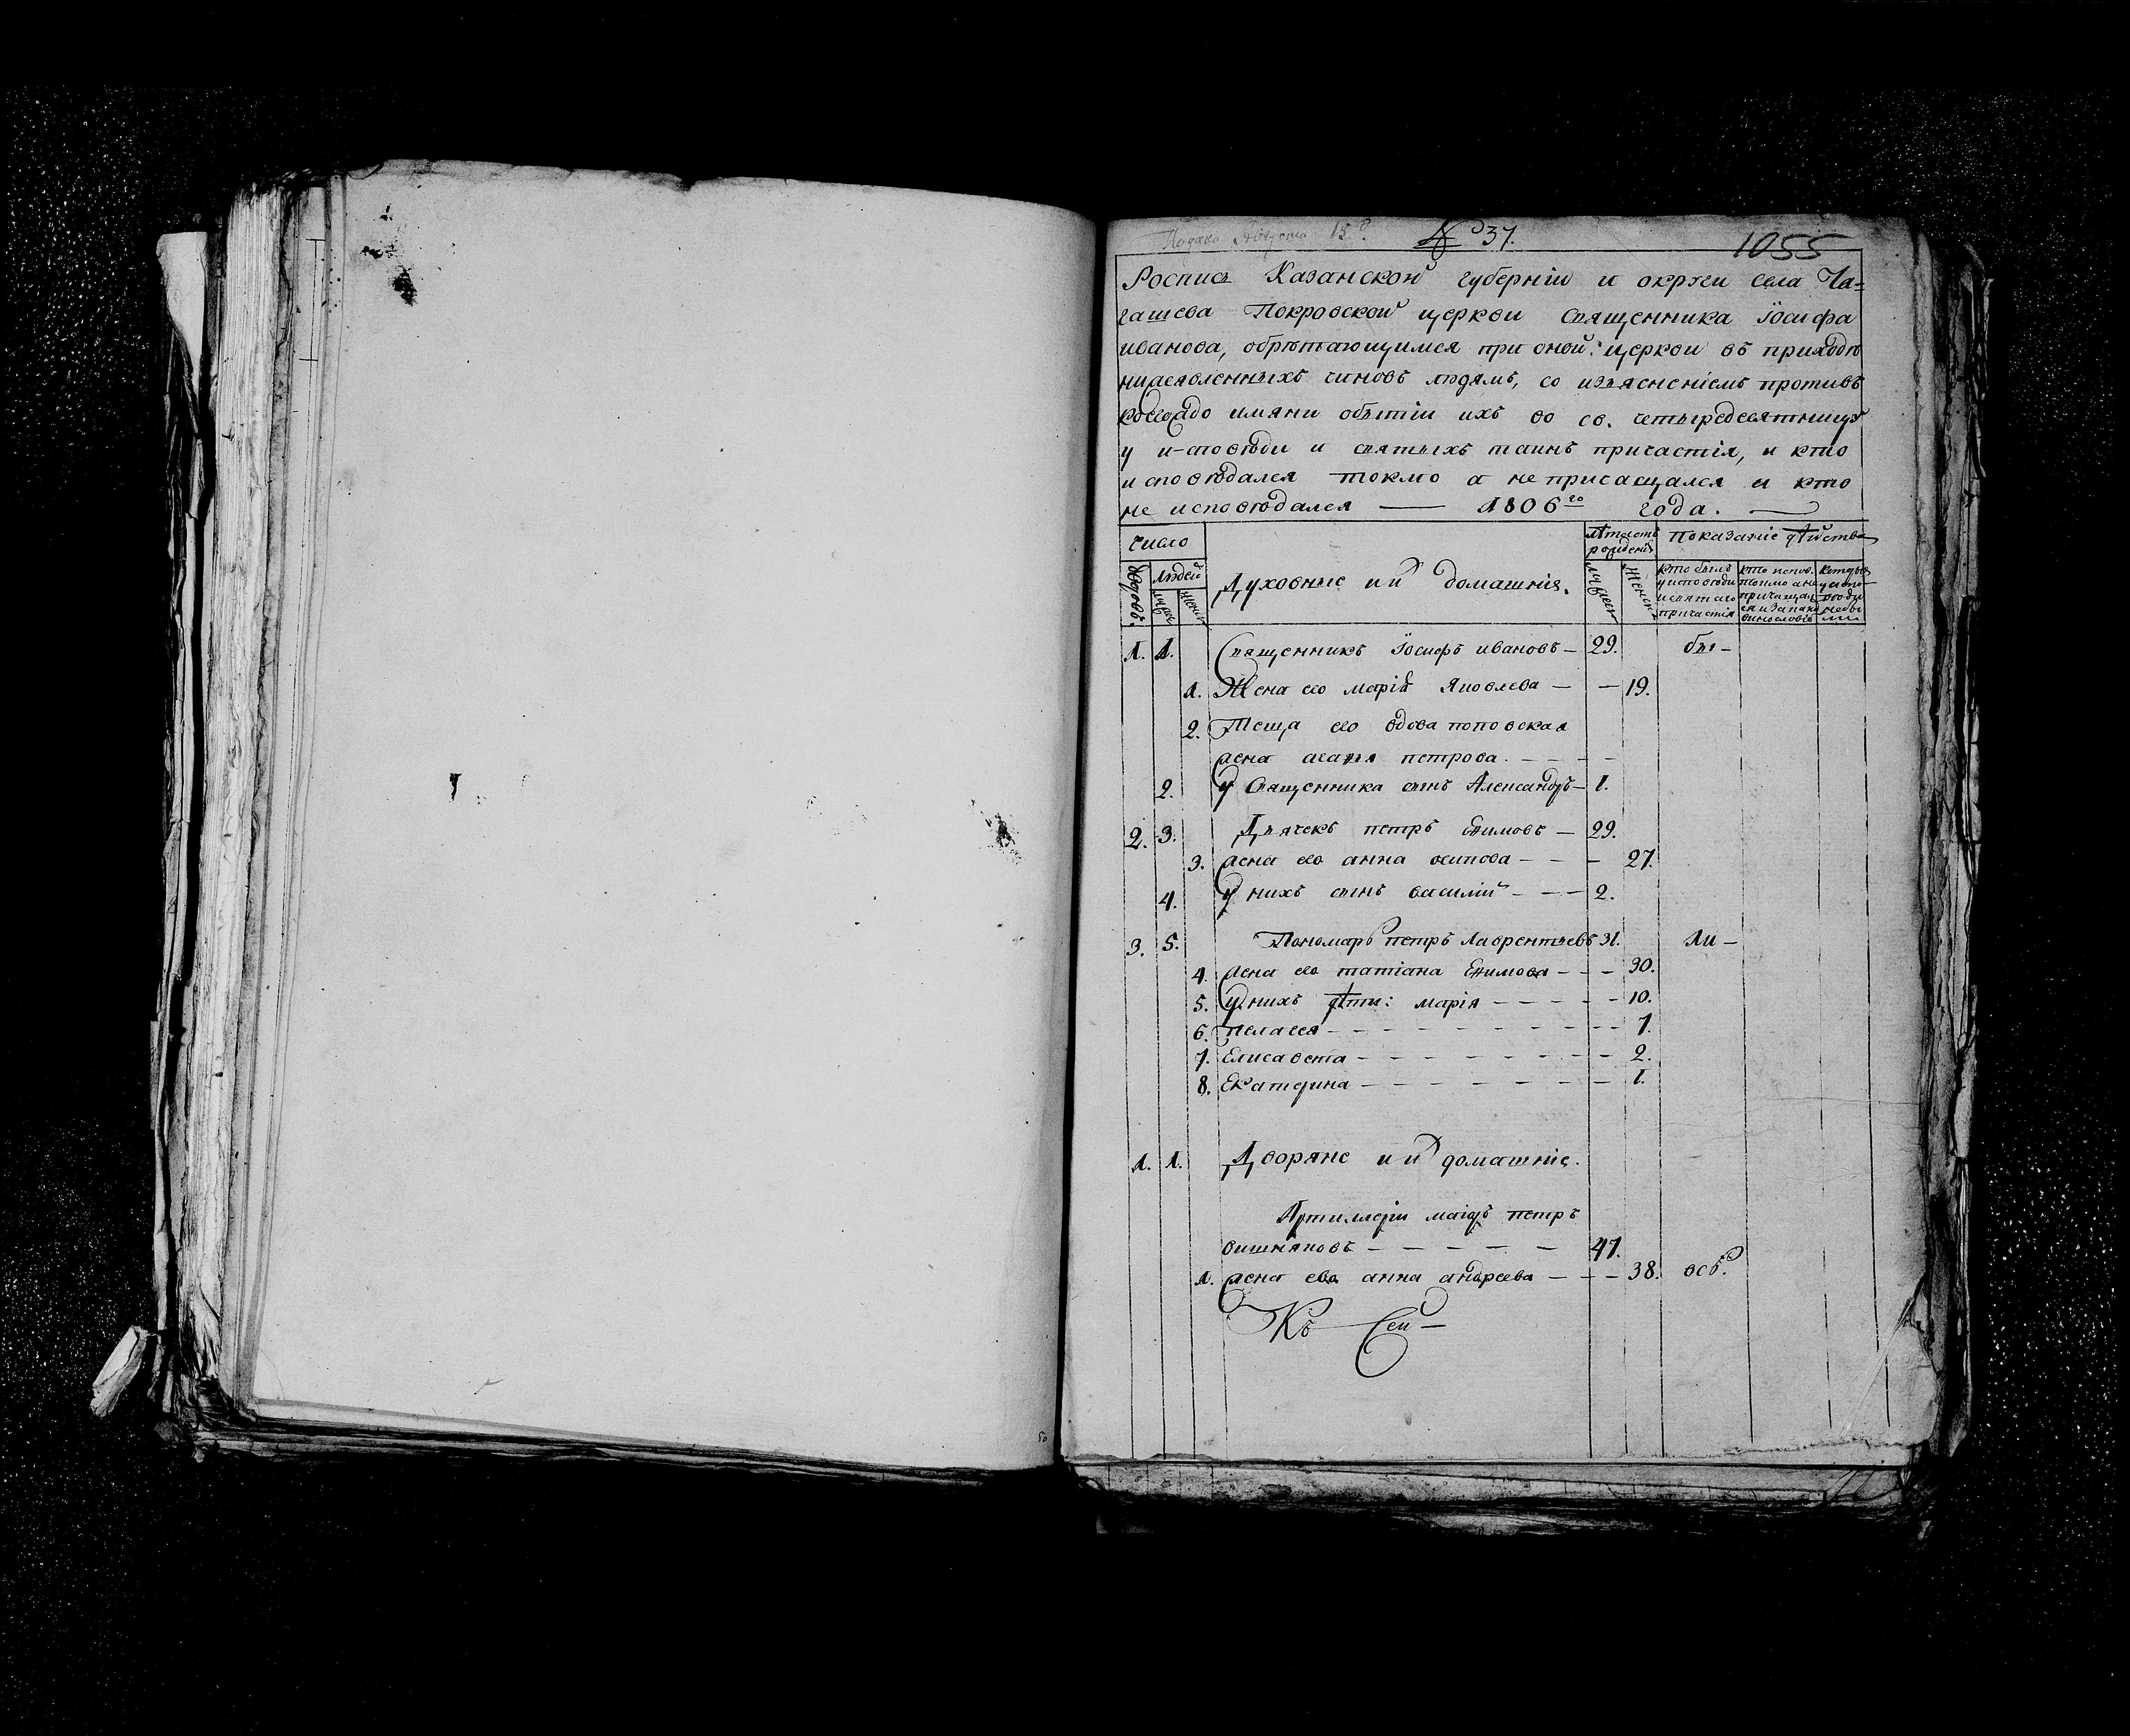 Подана Августа 15д. № 37. 1055
Роспись Казанской губернiи и округи села Ча=
гашева Покровской церкви священника Iосифа
иванова, обрѣтающимся при оной церкви въ приходѣ
нижеявленныхъ чиновъ людямъ, со изъясненiемъ противъ
коегождо имяни о бытiи ихъ во св. четыредесятницу
у исповѣди и святыхъ таинъ причастiя, и кто
исповѣдался токмо а не присащался и кто
не исповѣдался — 1806го года. —
число лѣта отъ рожденiя Показанiе дѣйства
дворовъ. людей мужес женск Духовные и ихъ домашнiя. мужес женск
кто былъ у исповѣди и святаго причастiя
кто испов. токмо а не причащался и за каковымъ винословiемъ
которые у исповѣди не были
1. 1. Священникъ Iосифъ ивановъ — 29. бы —
1. Жена его марiя Яковлева — — 19.
2. Теща его вдова поповская
жена петрова. — — — —
2. У Священника сынъ Александръ — 1.
2. 3. Дьячекъ петръ Ефимовъ — 29.
3. жена его анна осипова — — — 27.
4. У нихъ сынъ василiй — — — 2.
3. 5. Пономарь петръ Лаврентьевъ 31. ли —
4. жена его татiана Ефимова — — — 30.
5. У нихъ дѣти: марiя — — — — — 10.
6. пелагея — — — — — — — — — 7.
7. Елисавета — — — — — — — — 2.
8. Екатерина — — — — — — — 1.
1. 1. Дворяне и ихъ домашнiе.
Артиллерiи маiоръ петръ
вишняковъ — — — — — 47.
1. жена ево анна андреева — — — 38. всѣ.
Къ Сей —